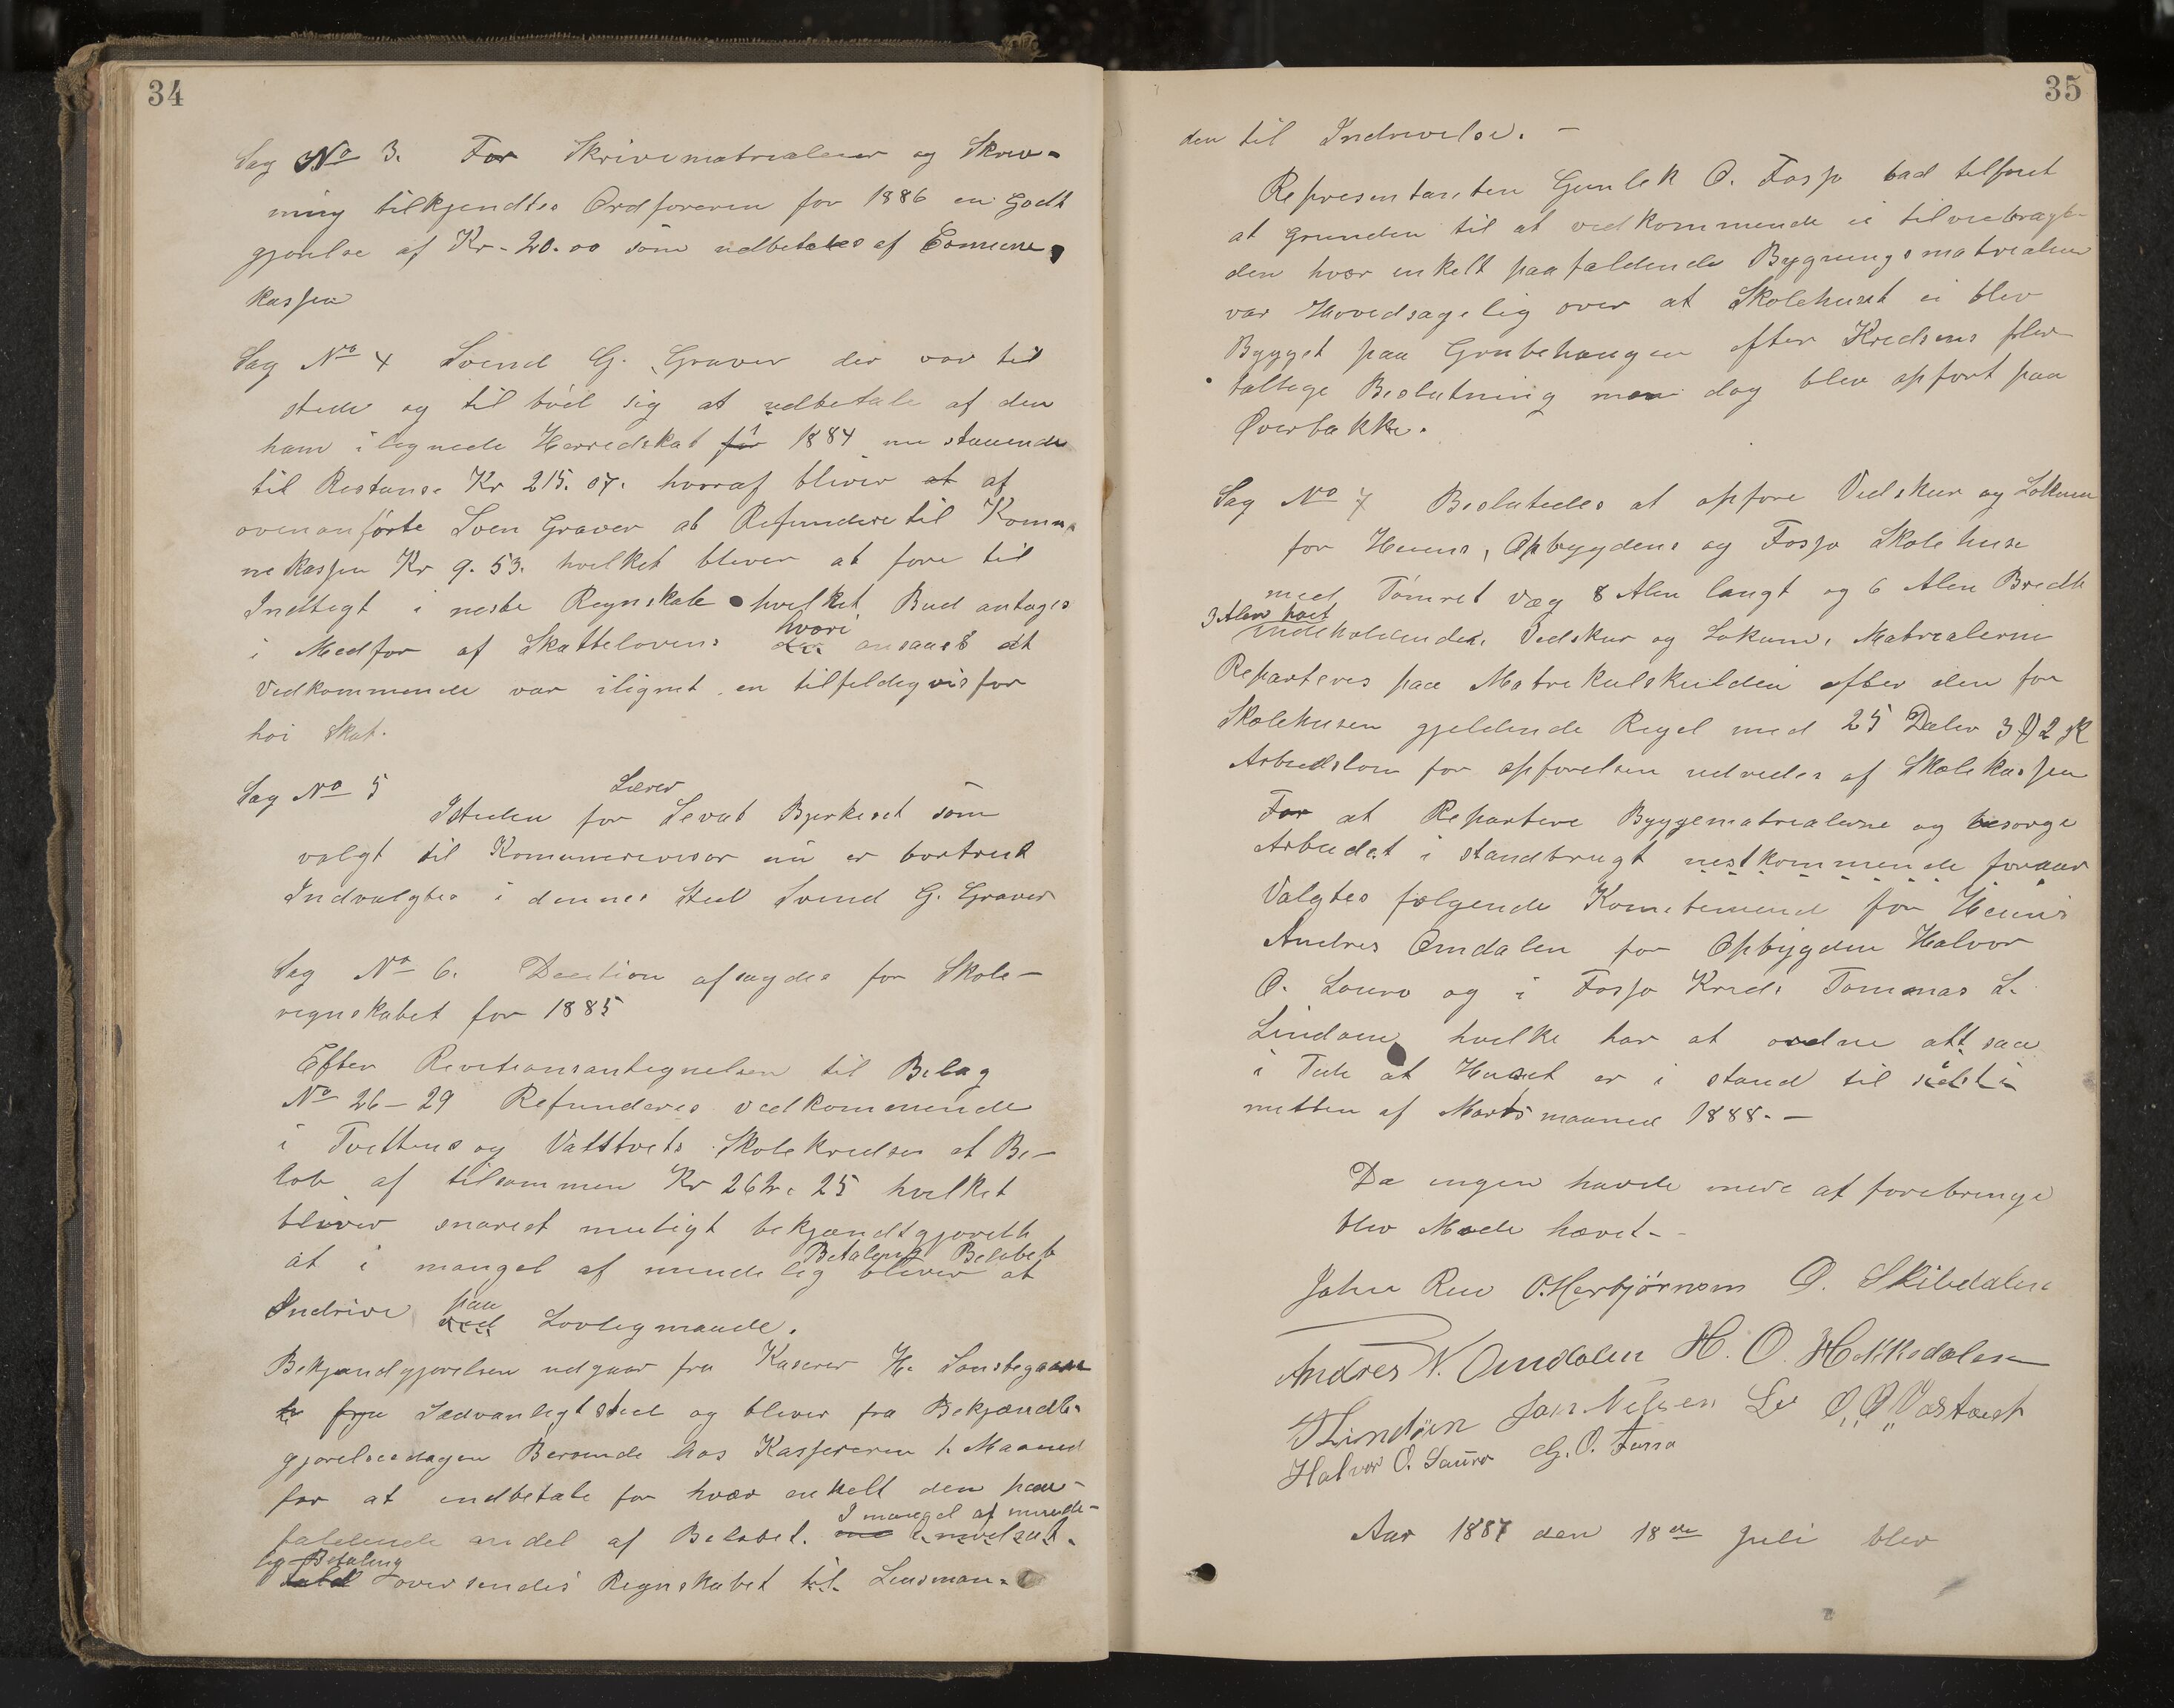 34
Sag No 3. For Skrivematrealeer og Skrev-
ning tilkjendtes Ordføreren for 1886 en Godt
gjørelse af Kr - 20.00 som udbetales af Comune
kassen
Sag No 4 Svend G. Graver der var til
stede og til bød sig at udbetale af den
ham ilignede Herredskat for 1884 nu staaende
til Restanse Kr 215.07. hvoraf bliver at af
ovenanførte Sven Graver at Refundere til Komu
nekassen Kr 9.53. hvilket bliver at føre til
Indtegt i neste Regnskab hvilket Bud antages
i Medfør af Skattelovens hvori ansaaes at
Vedkommende var ilignet en tilfeldigvis for
høi Skat.
Sag No 5 Lærer
Isteden for Sevat Bjerkeset som
valgt til Komunerevisor nu er bortreist
Indvalgtes i dennes Sted Svend G. Graver
Sag No 6. Decition afsagdes for Skole-
regnskabet for 1885
Efter Revitionsantegnelsen til Belag
No 26 - 29 Refunderes vedkommende
i Tveitens og Vatstvets Skolekredser et Be-
løb af tilsammen Kr 262.25 hvilket
bliver snarest muligt bekjendtgjorth
at i mangel af mindelig Betaling bliver Beløbet at
Indrive paa ved Lovlig maade.
Bekjendgjørelsen udgaar fra Kaserer H. Sønstegaard
fra Sædvanligt sted og bliver fra Bekjændt-
gjørelsesdagen Beroende hos Kassereren 1 Maaned
for at indbetale for hver enkelt den paa-
faldende andel af Beløbet. I mangel af minde-
lig Betaling oversendes Regnskabet til Lensman-
35
den til Indrivelse. -
Representanten Gunlek O. Fosso bad tilført
at grunden til at vedkommende ei tilveiebragte
den hver enkelt paafaldende Bygningsmatrealier
var Hovedsagelig over at Skolehuset ei blev
Bygget paa Grubehaugen efter Kredsens fler
tallige Beslutning men dog blev opført paa
Øverbakke.
Sag No 7 Besluttedes at opføre Vedskur og Lokum
for Heiens, Opbygdens og Fosso Skolehuse
med Tømret væg 8 Alen langt og 6 Alen Bredt
3 Alen høit indeholdendes Vedskur og Lokum, Matrealerne
Reparteres paa Matrekulskylden efter den for
Skolehusen gjeldende Regel med 25 Daler
Arbeidsløn for opførelsen udredes af Skolekassen
For at Repartere Byggematrealerne og besørge
Arbeidet i standbragt nestkommende foraar
Valgtes følgende Kometemend for Heiens
Andres Omdalen for Opbygden Halvor
O. Lauro og i Fosso Kreds Tommas L.
Lindøen hvilke har at ordne alt saa
i Tide at Huset er i stand til sidst i
mitten af Marts maaned 1888. -
Da ingen havde mere at forebringe
blev Møde hævet -
John Rui O. Herbjørnsen O. Skibdalen
Andres N. Omdalen H. O. Hokksdalen
T Lindöen Jan Nilsen Lie O. O. Vastveit
Halvor O. Lauro G. O. Fosso
Aar 1887 den 18de Juli blev